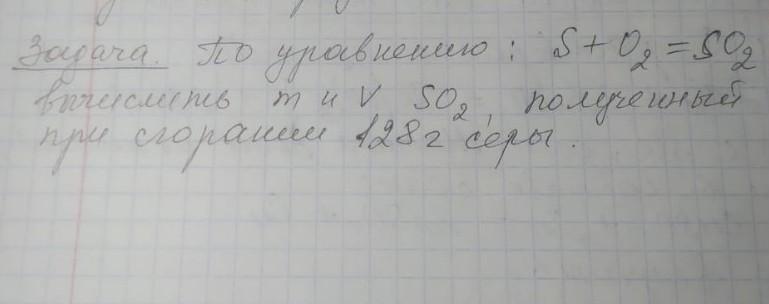 Задача. По уравнению: S + O₂ = SO₂
вычислить m и V SO₂, полученный
при сгорании 128 г серы.